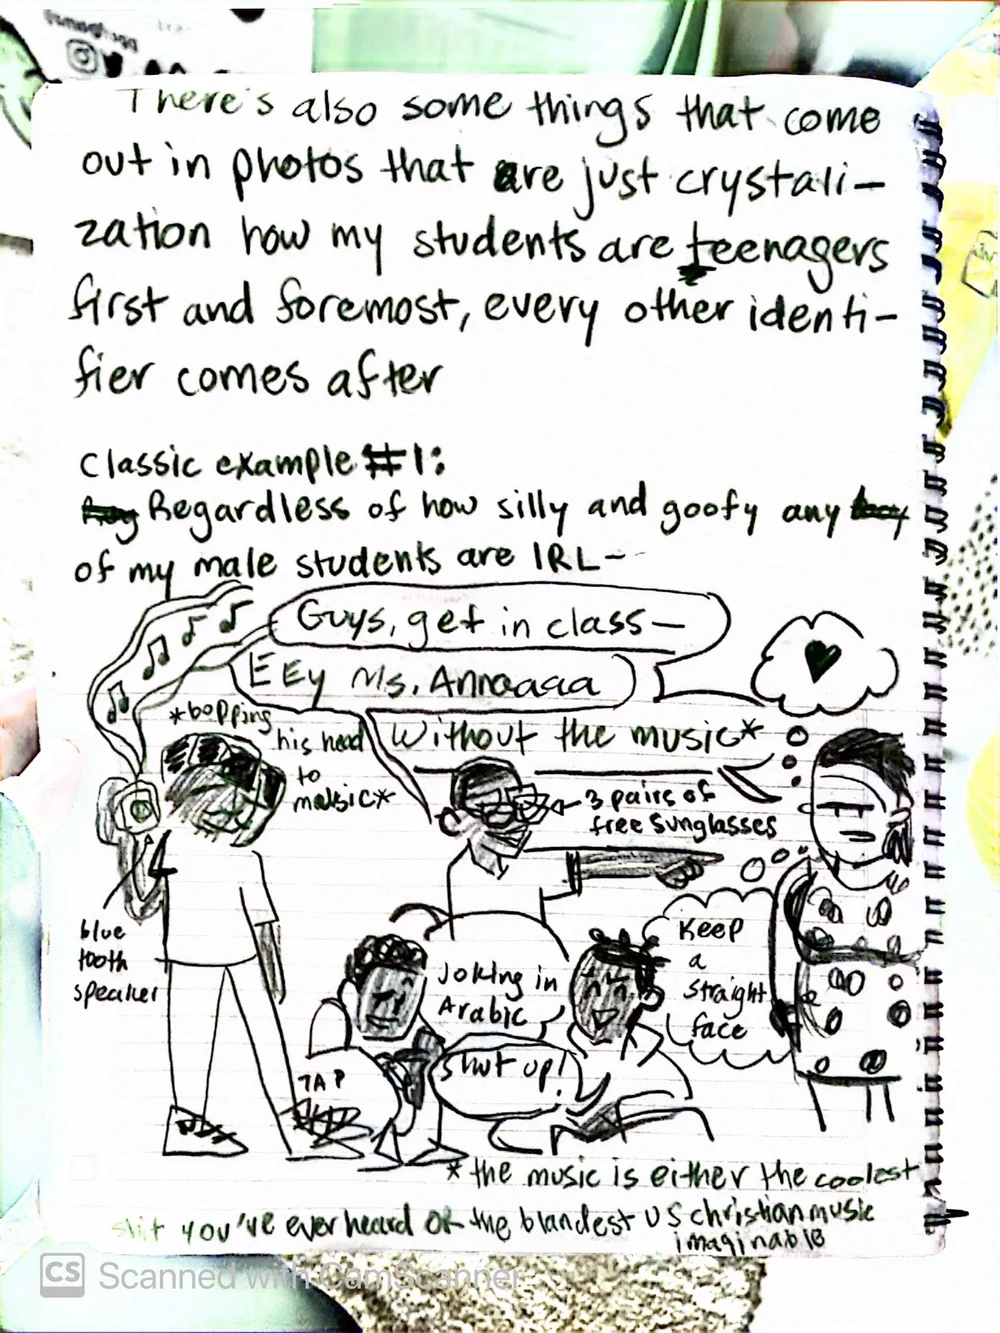 There's also some things that come
out in photos that are just crystali-
zation how my students are teenagers
first and foremost, every other identi-
fier comes after
Classic example #1:
Regardless of how silly and goofy any
of my male students are IRL-
Guys, get in class—
EEy Ms. Annaaaa
without the music*
*bopping
his head
to
music*
3 pairs of
free sunglasses
blue
tooth
speaker
Joking in
Arabic
Keep
a
straight
face
TAP
Shut up!
*the music is either the coolest
shit you've ever heard or the blandest US christian music
imaginable
CS Scanned with CamScanner